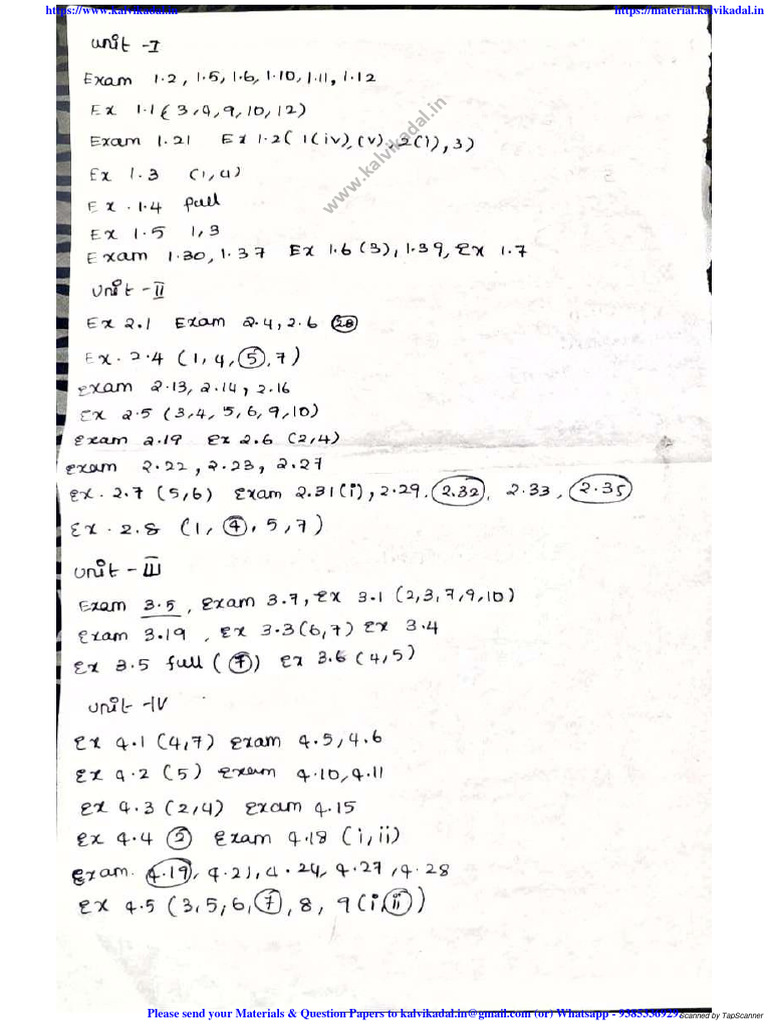 https://www.kalvikadal.in https://material.kalvikadal.in
Unit - I
Exam 1.2, 1.5, 1.6, 1.10, 1.11, 1.12
Ex 1.1 ( 3, 4, 9, 10, 12)
Exam 1.21 Ex 1.2 ( 1(iv), (v), 2(1), 3)
Ex 1.3 (1, 4)
www.kalvikadal.in
Ex . 1.4 full
Ex 1.5 1, 3
Exam 1.30, 1.37 Ex 1.6 (3), 1.39, Ex 1.7
Unit - II
Ex 2.1 Exam 2.4, 2.6
Ex . 2.4 (1, 4, 5, 7)
Exam 2.13, 2.14, 2.16
Ex 2.5 (3,4, 5, 6, 9, 10)
Exam 2.19 Ex 2.6 (2,4)
Exam 2.22, 2.23, 2.27
Ex . 2.7 (5,6) Exam 2.31(i), 2.29, 2.32, 2.33, 2.35
Ex . 2.8 (1, 4, 5, 7)
Unit - III
Exam 3.5, Exam 3.7, Ex 3.1 (2,3,7,9,10)
Exam 3.19, Ex 3.3 (6,7) Ex 3.4
Ex 3.5 full ( 7 ) Ex 3.6 (4,5)
Unit - IV
Ex 4.1 (4,7) Exam 4.5, 4.6
Ex 4.2 (5) Exam 4.10, 4.11
Ex 4.3 (2,4) Exam 4.15
Ex 4.4 Exam 4.18 (i, ii)
Exam. 4.19, 4.21, 4.24, 4.27, 4.28
Ex 4.5 (3, 5, 6, 7, 8, 9 (i, ii)
Please send your Materials & Question Papers to kalvikadal.in@gmail.com (or) Whatsapp - 9385336929
Scanned by TapScanner